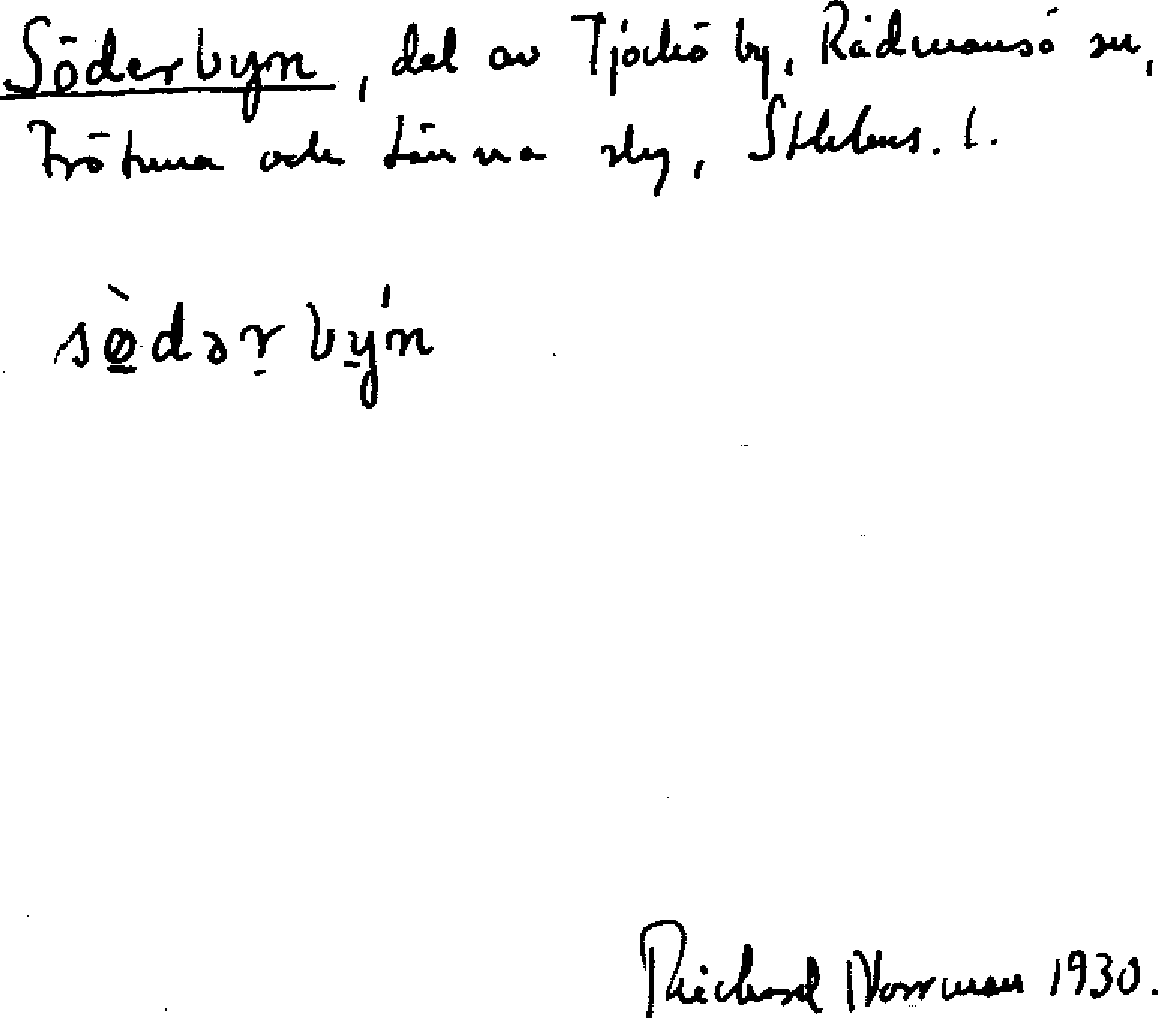 Söderbyn, del av Tjockö by, Rådmansö sn,
Frötuna och Länna slg, Sthlms. l.
sø̀dərbýn
Richard Norrman 1930.